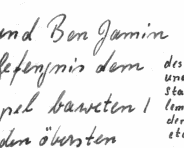 und Ben Jamin
Gefengnis dem
pel baweten /
den öbersten
des
und
Sta
lem
der
eta